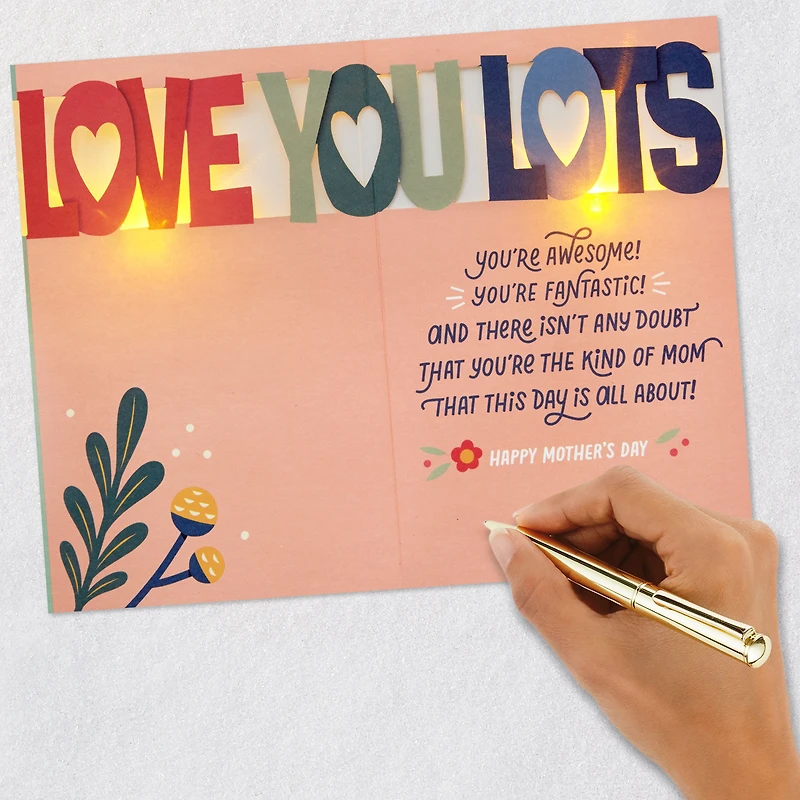 LOVE YOU LOTS
YOU'RE AWESOME!
YOU'RE FANTASTIC!
AND THERE ISN'T ANY DOUBT
THAT YOU'RE THE KIND OF MOM
THAT THIS DAY IS ALL ABOUT!
HAPPY MOTHER'S DAY